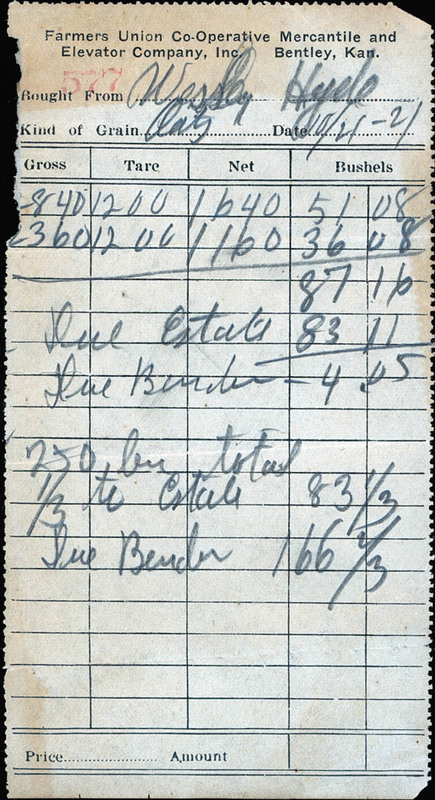 Farmers Union Co-Operative Mercantile and
Elevator Company, Inc. Bentley, Kan.
577
Bought From Wesley Hyde
Kind of Grain Oats Date 10/21-21
Gross Tare Net Bushels
2840 1200 1640 51 08
2360 1200 1160 36 08
87 16
Due Estate 83 11
Due Bender - 4 .05
250 bu total
1/3 to Estate 83 1/3
Due Bender 166 2/3
Price Amount